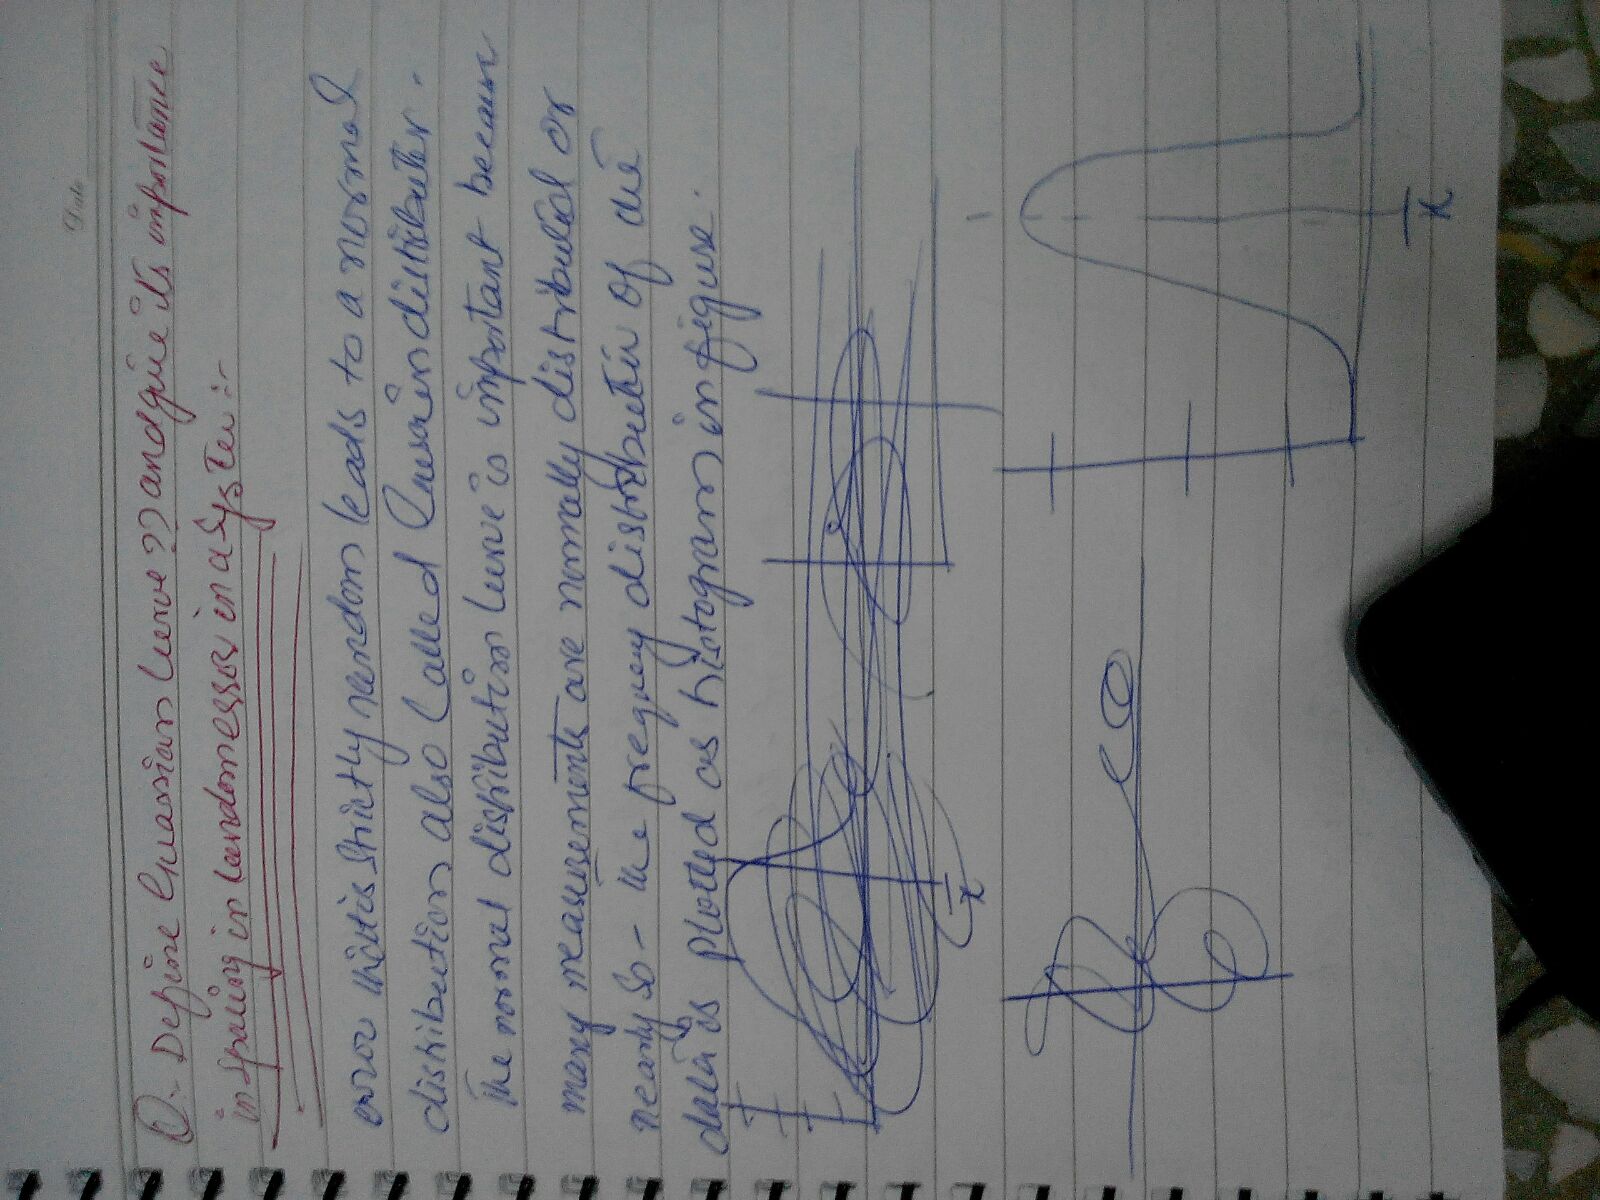 Date
Q:- Define Guassian Curve ?? and give its importance
in spacing in randomessor in a System :-
error that is strictly random leads to a normal
distribution also Called Gausain distribution.
The normal distribution Curve is important because
many measurements are normally distributed or
nearly So - The frequency distribution of the
data is plotted as histogram in figure.
x̄
x̄